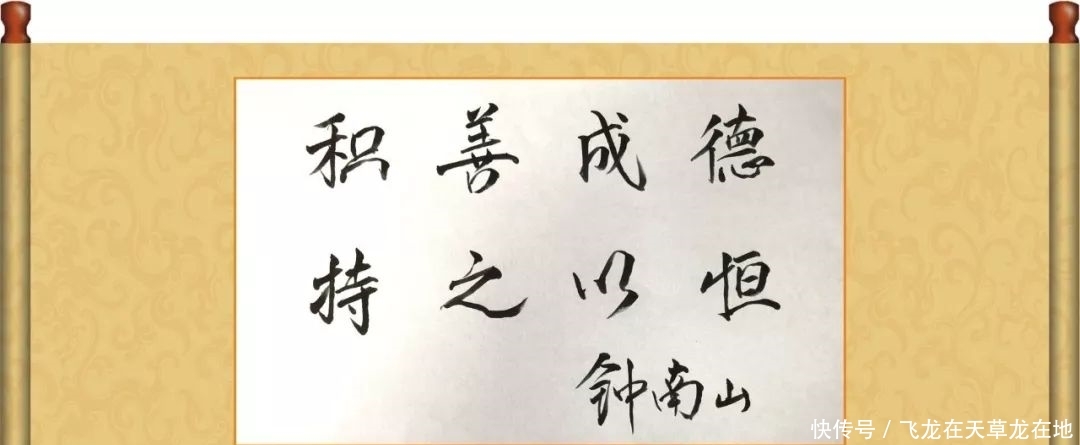 积善成德
持之以恒
钟南山
快传号 / 飞龙在天草龙在地